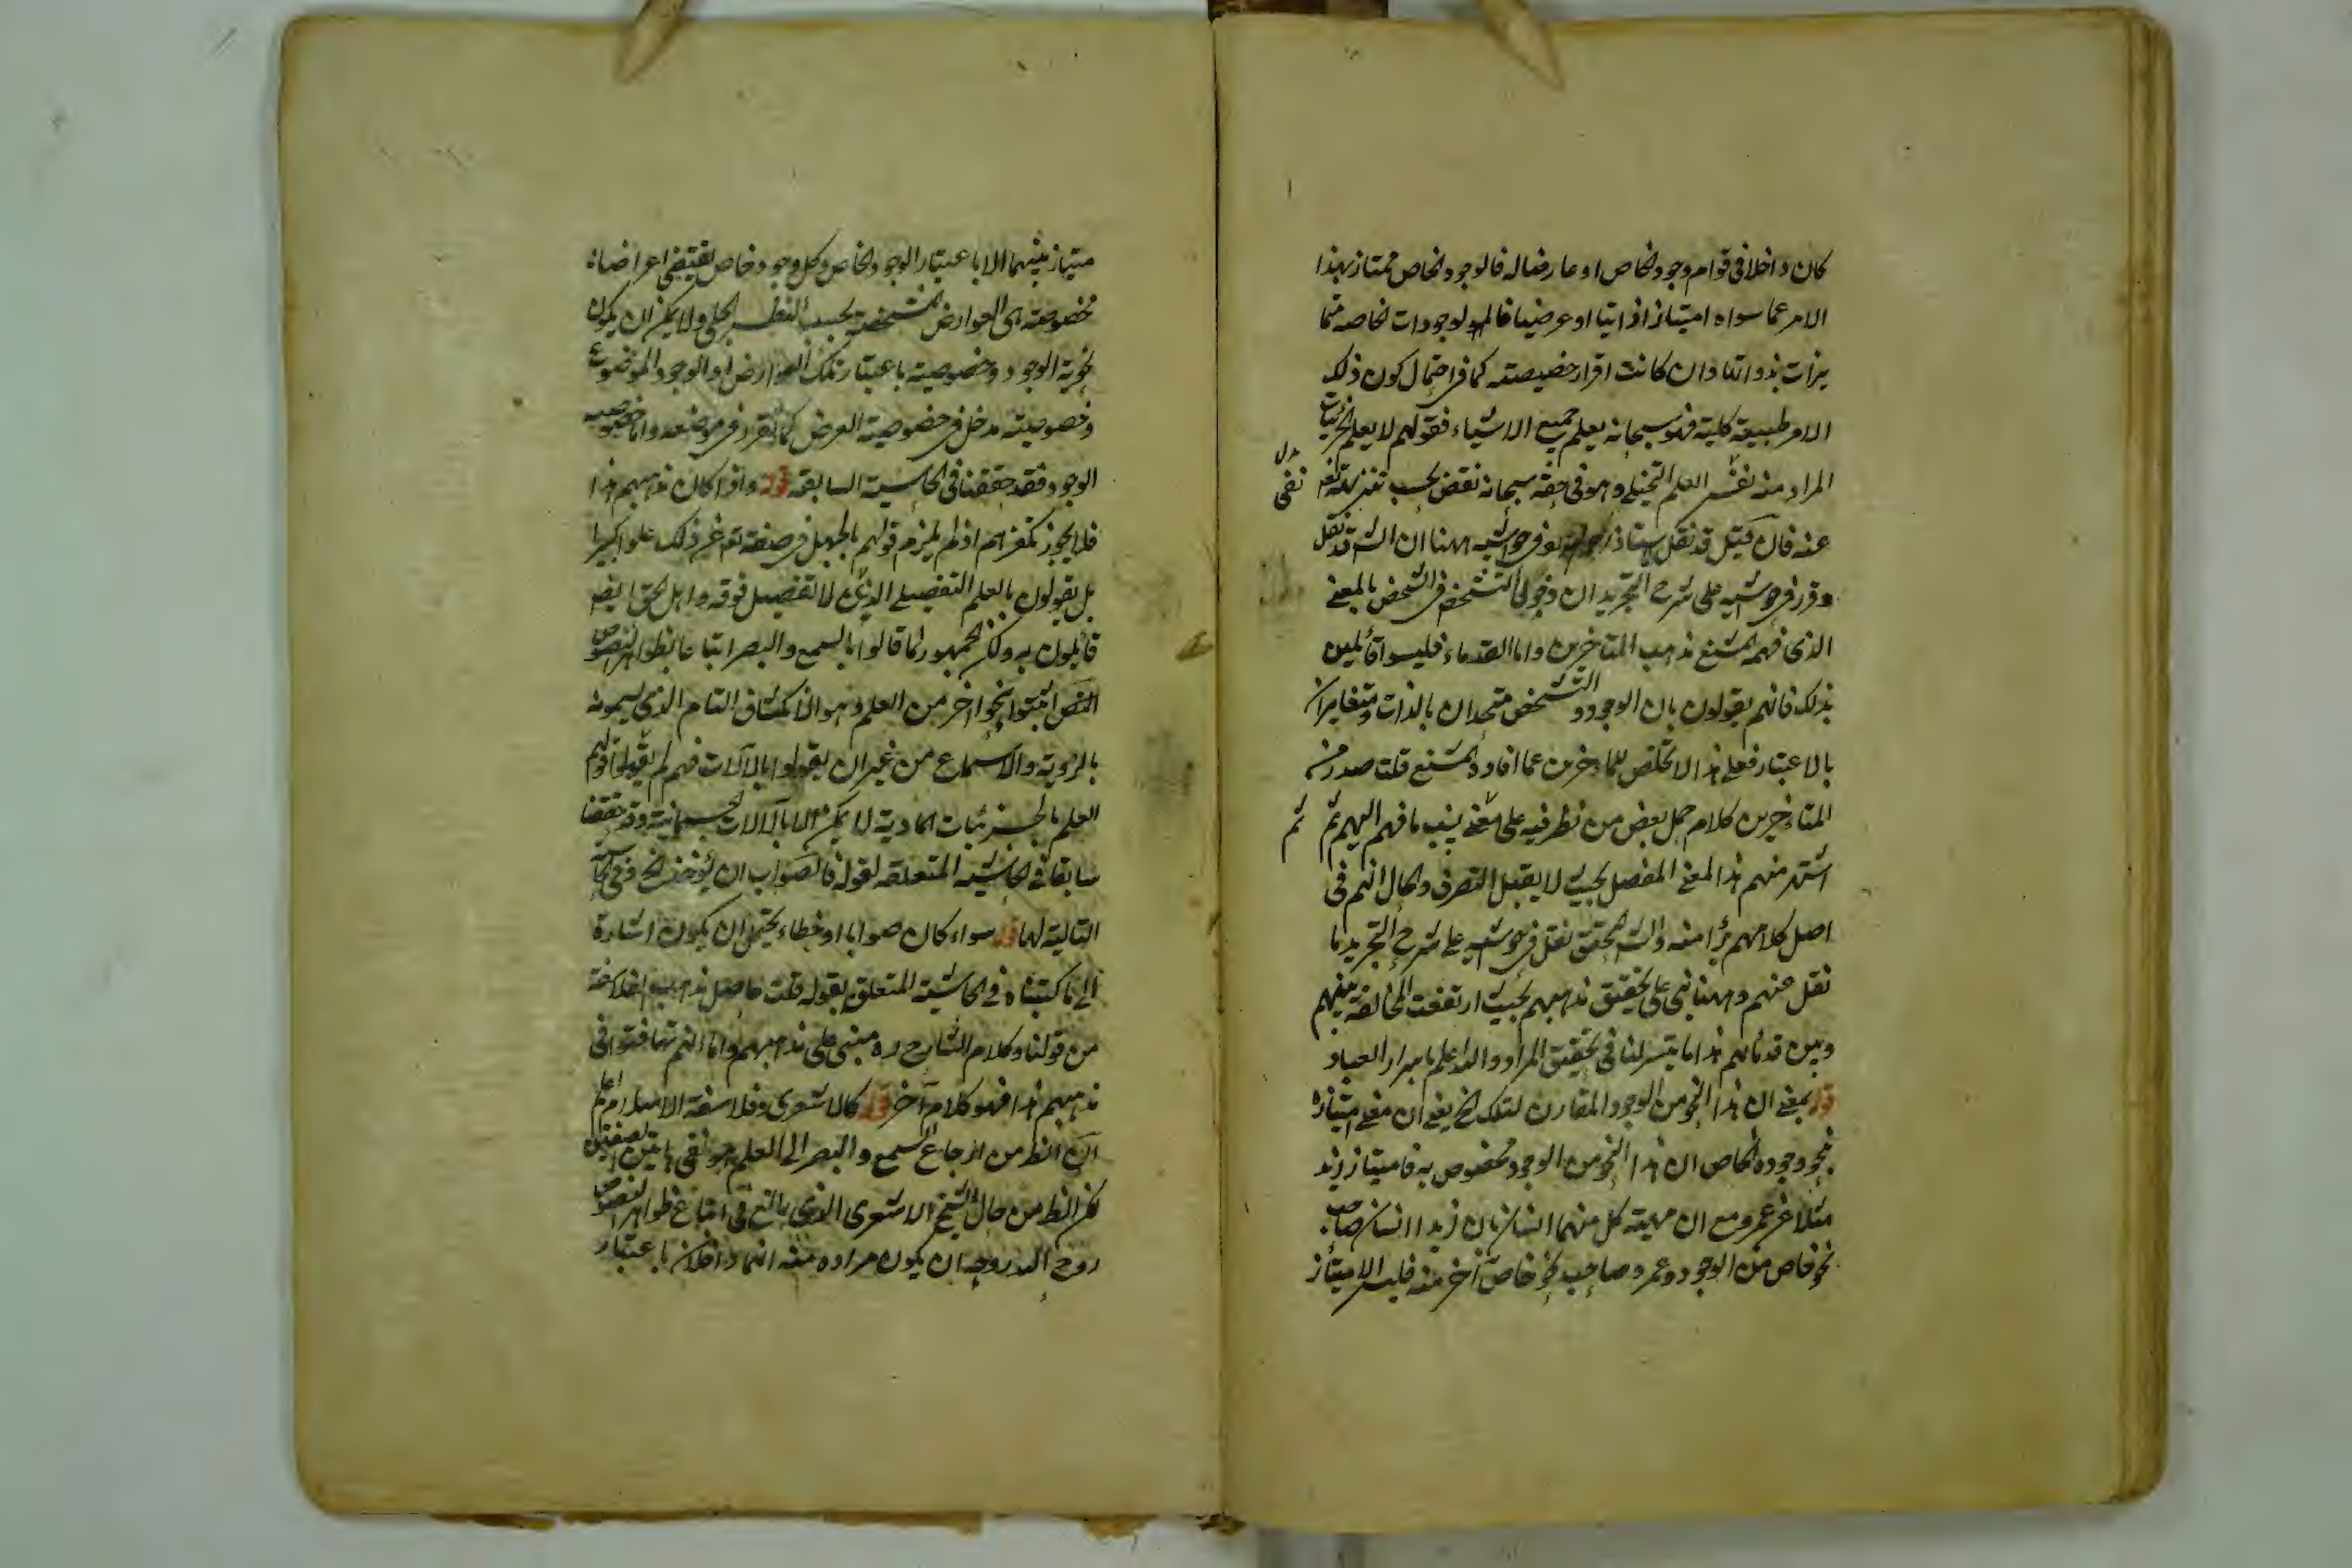 كان داخلا في قوام وجود الخاص او عارضا له فالوجود الخاص ممتاز بهذا
الامر عما سواه امتيازا ذاتيا او عرضيا فالوجودات الخاصه متما
يزات بذواتها وان كانت اقرار خصيصته كما في احتمال كون ذلك
الامر طبيعة كلية فهو سبحانه يعلم جميع الاشياء فقولهم لا يعلم الجزئيات
المراد منه نفس العلم التخيلي وهو في حقه سبحانه نقص يجب تنزيهه تع
بدل
نفي
عنه فان قيل قد نقل استاذ في حواشيه ههنا ان الش قد نقل
وقرر في حواشيه على شرح التجريد ان دخول التشخص في الشخص بالمعنى
الذي فهمه المشنع مذهب المتاخرين واما القدماء فليسوا قائلين
بذلك فانهم يقولون بان الوجود والتشخص متحدان بالذات ومتغايران
بالاعتبار فعلى هذا لا تخلص للمتاخرين عما افاده المشنع قلت صدر من
المتاخرين كلام حمل بعض من نظر فيه على معنى ينسب ما فهم اليهم ثم
ثم
اشتهر منهم هذا المعنى المفصل بحيث لا يقبل التصرف والحال انهم في
اصل كلامهم برآ منه والش المحقق نقل في حواشيه على شرح التجريد ما
نقل عنهم وههنا بنى على تحقيق مذهبهم بحيث ارتفعت المخالفة بينهم
وبين قدمائهم هذا ما يتسر لنا في تحقيق المراد والله اعلم باسرار العباد
قوله بمعنى ان هذا النحو من الوجود المقارن لتلك الخ يعنى ان معنى امتيازه
بنحو وجوده الخاص ان هذا النحو من الوجود مخصوص به فامتياز زيد
مثلا عن عمرو مع ان مهية كل منهما انسان بان زيدا انسان صاحب
نحو خاص من الوجود وعمرو صاحب نحو خاص آخر منه فليس الامتياز
متياز بينهما الا باعتبار الوجود الخاص وكل وجود خاص يقتضي اعراضاه
مخصوصة هي العوارض المشخصة بحسب النظر الجلي ولا يمكن ان يكون
نحوية الوجود وخصوصيته باعتبار تلك العوارض او الوجود الموضوع
وخصوصيته مدخل في خصوصية العرض كما تقرر في موضعه واما خصوصيه
الوجود فقد حققنا في الحاشية السابقه قوله واذا كان مذهبهم هذا
فلا يجوز تكفيرهم اذ لم يلزم قولهم بالجهل في صفته تع عن ذلك علوا كبيرا
بل يقولون بالعلم التفصيلي الذي لا تفصيل فوقه واهل الحق ايضه
قائلون به ولكن الجمهور لما قالوا بالسمع والبصر اتباعا بظواهر النصوص
اثبتوا نحوا اخر من العلم وهو الانكشاف التام الذي يسمونه
بالرؤية والاسماع من غير ان يقولوا بالآلات فهم لم يقولوا قولهم
العلم بالجزئيات المادية لا يمكن الا بالآلات الجسمانية وقد حققنا
سابقا في الحاشية المتعلقه لقوله فالصواب ان يؤخذ الخ وفي الحاشية
التالية لها قوله سواء كان صوابا او خطاء يحتمل ان يكون اشارة
الى ما كتبناه في الحاشية المتعلق بقوله قلت حاصل مذهب الفلاسفة
من قولنا وكلام الشارح ره مبنى على مذهبهم واما انهم تهافتوا في
مذهبهم هذا فهو كلام آخر قوله كالاشعري وفلاسفة الاسلام اعلم
ان الظ من ارجاع السمع والبصر الى العلم هو نفي هاتين الصفتين
لكن الظ من حال الشيخ الاشعري الذي بالغ في اتباع ظواهر النصوص
روح الله روحه ان يكون مراده منه انهما داخلان باعتبار